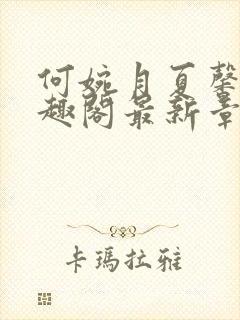 何婉月夏馨
趣阁最新章
卡瑪拉雅